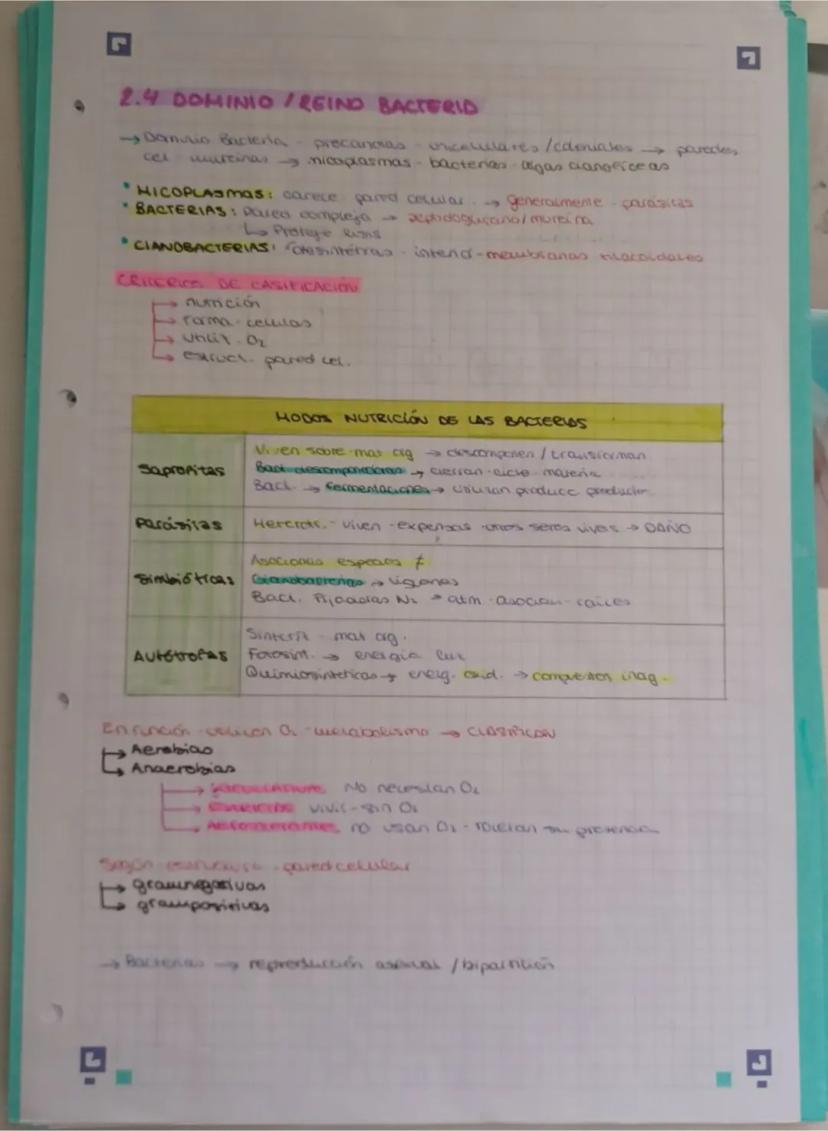 2.4 DOMINIO / REINO BACTERIA
→ Dominio Bacteria - procariotas - unicelulares / coloniales → paredes
cel. mureínas → micoplasmas - bacterias - algas cianofíceas
• MICOPLASMAS: carece pared celular. → generalmente parásitas
• BACTERIAS: pared compleja → peptidoglucano / mureína
↳ Protege lisis
• CIANOBACTERIAS: fotosintéticas - interior - membranas tilacoidales
CRITERIOS DE CASIFICACIÓN
→ nutrición
→ forma celulas
→ utiliz. O₂
→ estruct. pared cel.
MODOS NUTRICIÓN DE LAS BACTERIAS
Saprofitas
Viven sobre mat org → descomponen / transforman
Bact descomponedoras → cierran ciclo materia
Bact. → fermentaciones → utilizan producc productos
Parásitas
Heterótr. - viven - expensas otros seres vivos → DAÑO
Simbióticas
Asociadas especies ≠
Cianobacterias → líquenes
Bact. fijadoras N₂ → atm - asocian - raíces
Autótrofas
Sintetiz - mat org.
Fotosint. → energía luz
Quimiosintéticas → energ. oxid. → compuestos inorg.
En función utilicen O₂ - metabolismo → CLASIFICAN
→ Aerobias
→ Anaerobias
→ FACULTATIVAS No necesitan O₂
→ ESTRICTAS vivir - sin O₂
→ AEROTOLERANTES no usan O₂ - toleran su presencia
Según estructura - pared celular
→ gramnegativas
→ grampositivas
→ Bacterias → reproducción asexual / bipartición